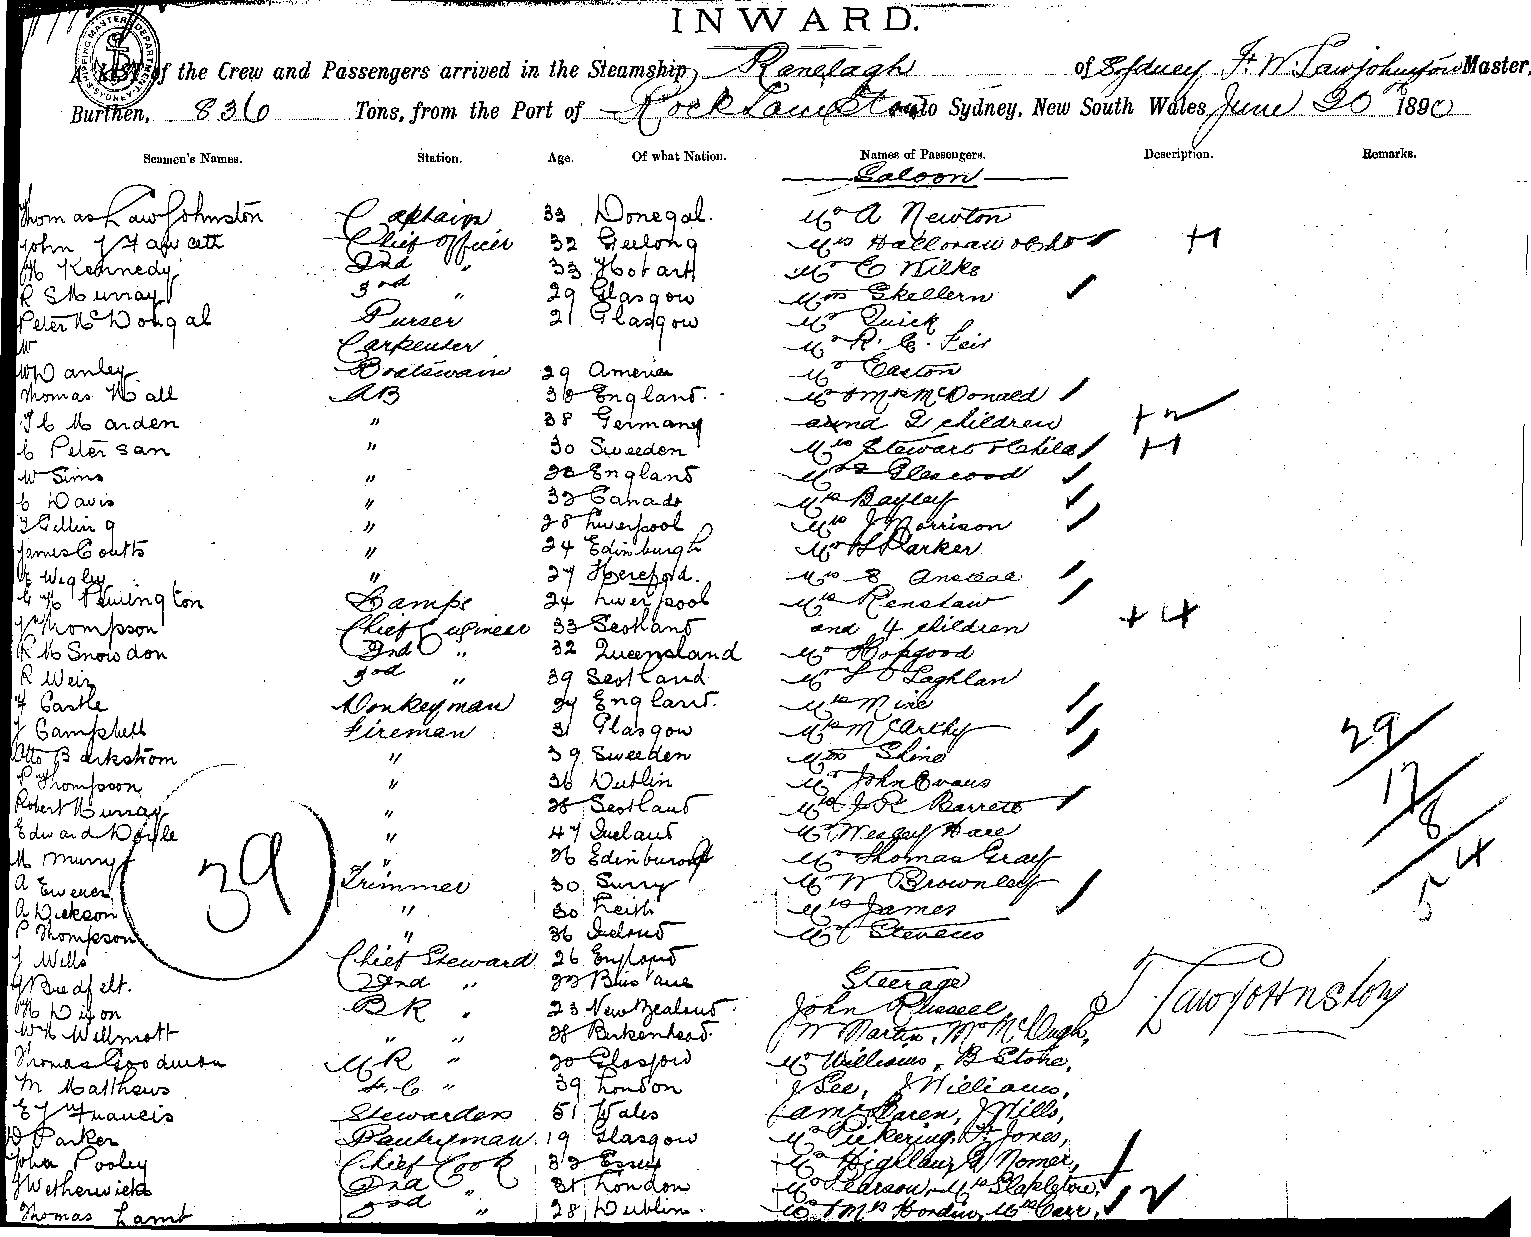 INWARD.
A LIST of the Crew and Passengers arrived in the Steamship Ranelagh of Sydney, T. W. Lawjohnston Master,
Burthen, 836 Tons, from the Port of Rockhampton to Sydney, New South Wales, June 30th 1890
Seamen's Names. Station. Age. Of what Nation. Names of Passengers. Description. Remarks.
Saloon
Thomas LawJohnston Captain 33 Donegal. Mr A Newton
John J Fawcett Chief Officer 32 Geelong Mrs Halloraw & Chd +1
Kennedy 2nd " 33 Hobart Mr C Wilks
R S Murray 3rd " 29 Glasgow Mrs Skellern
Peter McDougal Purser 21 Glasgow Mr Quick
W Carpenter Mr R. C. Feir
W Danley Boatswain 29 America Mr Easton
Thomas Hall AB 30 England. Mr & Mrs McDonald
Marden " 38 Germany and 2 children +2
C Petersan " 30 Sweeden Mrs Stewart & Child +1
W Sims " 28 England Mrs
C Davis " 32 Canada Mrs Bayley
" 28 Liverpool Mrs J Morrison
James Coutts " 24 Edinburgh Mr Parker
Wigley " 27 Hereford. Mrs
Penington Lamps 24 Liverpool Mrs Renshaw
Thompson Chief Engineer 33 Scotland and 4 children +4
R M Snowdon 2nd " 32 Queensland Mr Hopgood
R Weir 3rd " 39 Scotland Mr L O Laghlan
Castle Donkeyman 37 England. Mrs Mine
J Campbell Fireman 31 Glasgow Mrs McCarthy 29
Otto Barkstrom " 39 Sweeden Mrs Shine
P Thompson " 36 Dublin Mr John Evans 17
Robert Murray " 28 Scotland Mrs J R Barrett 8
Edward Doyle " 47 Ireland Mr Wesley Hall
M Murry " 36 Edinburgh Mr Thomas Gray 4
39
A Trimmer 30 Surry Mr W Brownley 5
A Dickson " 30 Leith Mrs James
P Thompson " 36 Ireland Mr Stevens
J Wills Chief Steward 26 England
2nd " 22 Brisbane Steerage
Dixon BR " 23 New Zealand. John Russell, T LawJohnston
W H Willmott " " 28 Berkenhead. W Martin, Mr McHugh,
Thomas Goodwin MR " 20 Glasgow Mr Williams, B Stone,
M Matthews F.C " 39 London J See, J Williams,
E J Francis Stewardess 51 Wales Caren, J Mills,
D Parker Pantryman 19 Glasgow Mr Pickering, Jones,
John Pooley Chief Cook 32 Essex Mr Highland, Nomer,
J Wetherwick 2nd " 31 London Mr Pearson, Mrs Stapleton,
Thomas Lamb 3rd " 28 Dublin. Mr & Mrs Hordin, Mrs Carr,